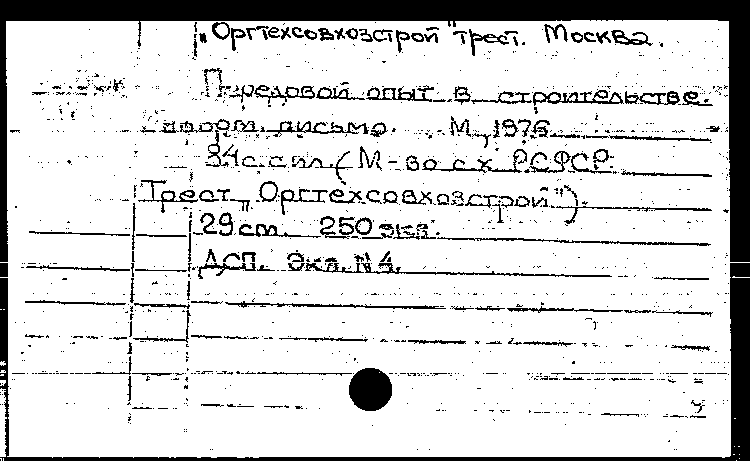 "Оргтехсовхозстрой" трест. Москва.
Передовой опыт в строительстве.
Информ. письмо. М., 1976
34 с. с ил. (М-во с.х. РСФСР.
Трест "Оргтехсовхозстрой").
29 см. 250 экз.
ДСП. Экз. N 4.